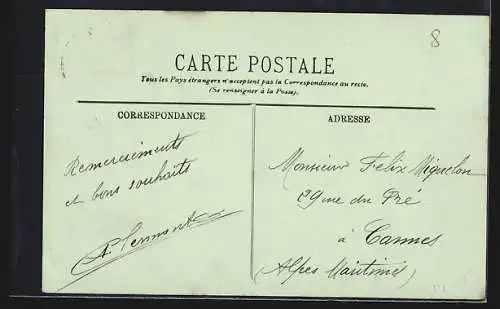 8
CARTE POSTALE
Tous les Pays étrangers n'acceptent pas la Correspondance au recto.
(Se renseigner à la Poste).
CORRESPONDANCE
ADRESSE
Remerciements
et bons souhaits
Monsieur Felix Miquelon
29 rue du Pré
à Cannes
(Alpes Maritimes)